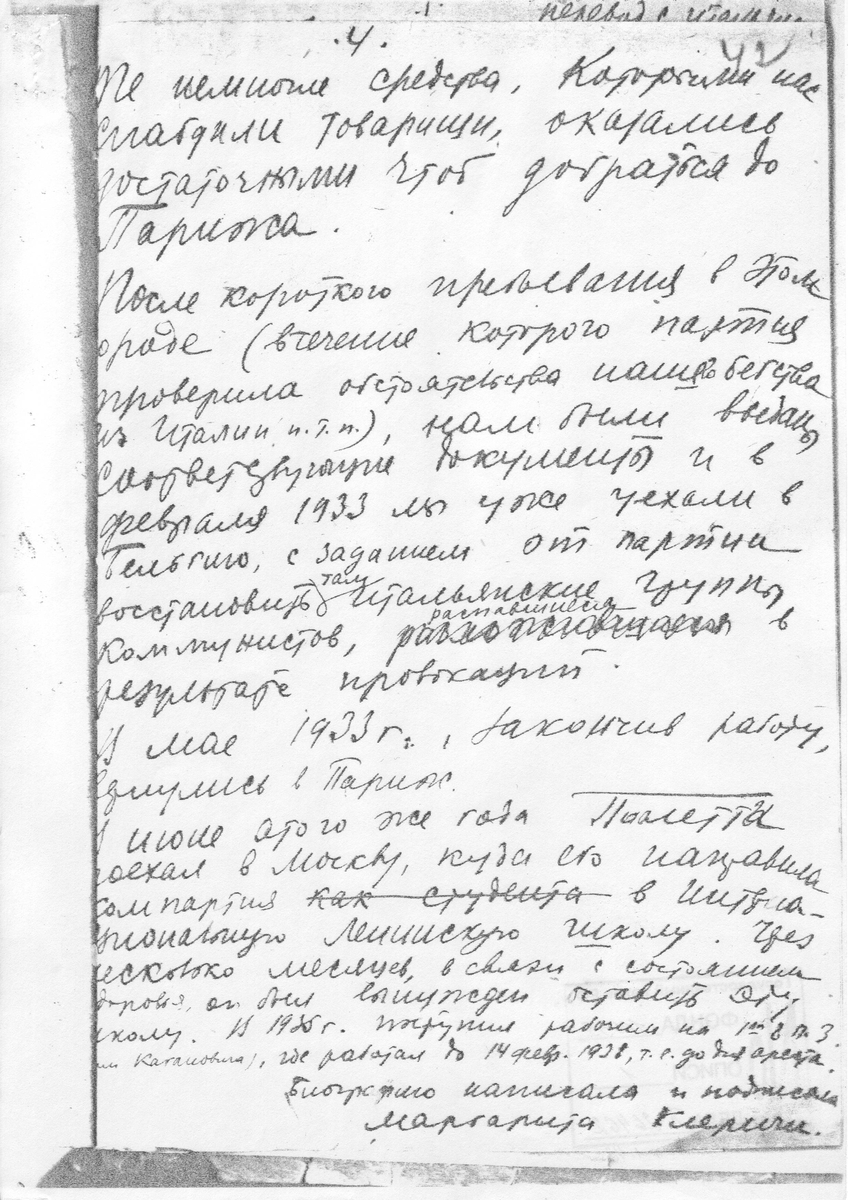 перевод с итальян.
.4.
42
Те немногие средства, которыми нас
снабдили товарищи, оказались
достаточными чтоб добраться до
Парижа.
После короткого пребывания в этом
городе (втечение которого партия
проверила обстоятельства нашего бегства
из Италии и.т.п.), нам были выданы
соответствующие документы и в
феврале 1933 мы уже уехали в
Бельгию, с заданием от партии
восстановить там итальянские группы
коммунистов, распавшиеся в
результате провокаций.
В мае 1933 г., закончив работу,
вернулись в Париж.
В июне этого же года Полетти
поехал в Москву, куда его направила
компартия как студента в Интерна-
циональную Ленинскую школу. Через
несколько месяцев, в связи с состоянием
здоровья, он был вынужден оставить эту
школу. В 1935 г. поступил рабочим на 1й Г.П.З.
им Кагановича), где работал до 14 февр. 1938, т.е. до дня ареста.
Биографию написала и подписала
Маргарита Клеричи.
ФОНДА
ОПИСИ